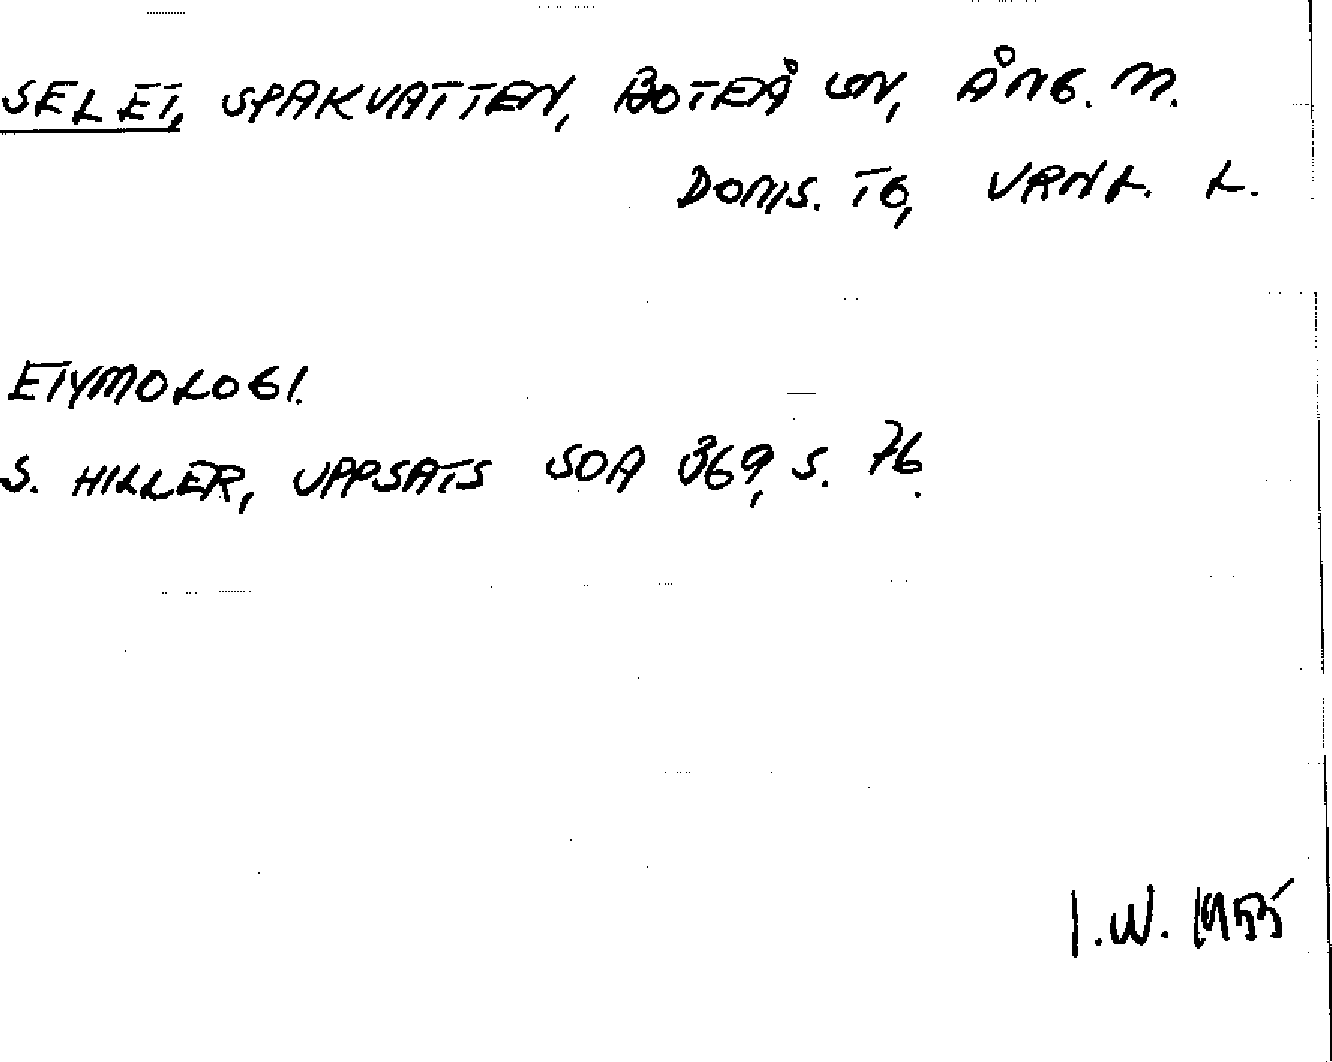 SELET, SPAKVATTEN, BOTEÅ SN, ÅNG. M.
DOMS. TG, VRML. L.
ETYMOLOGI.
S. HILLER, UPPSATS SOA 369, S. 76.
I.W. 1955